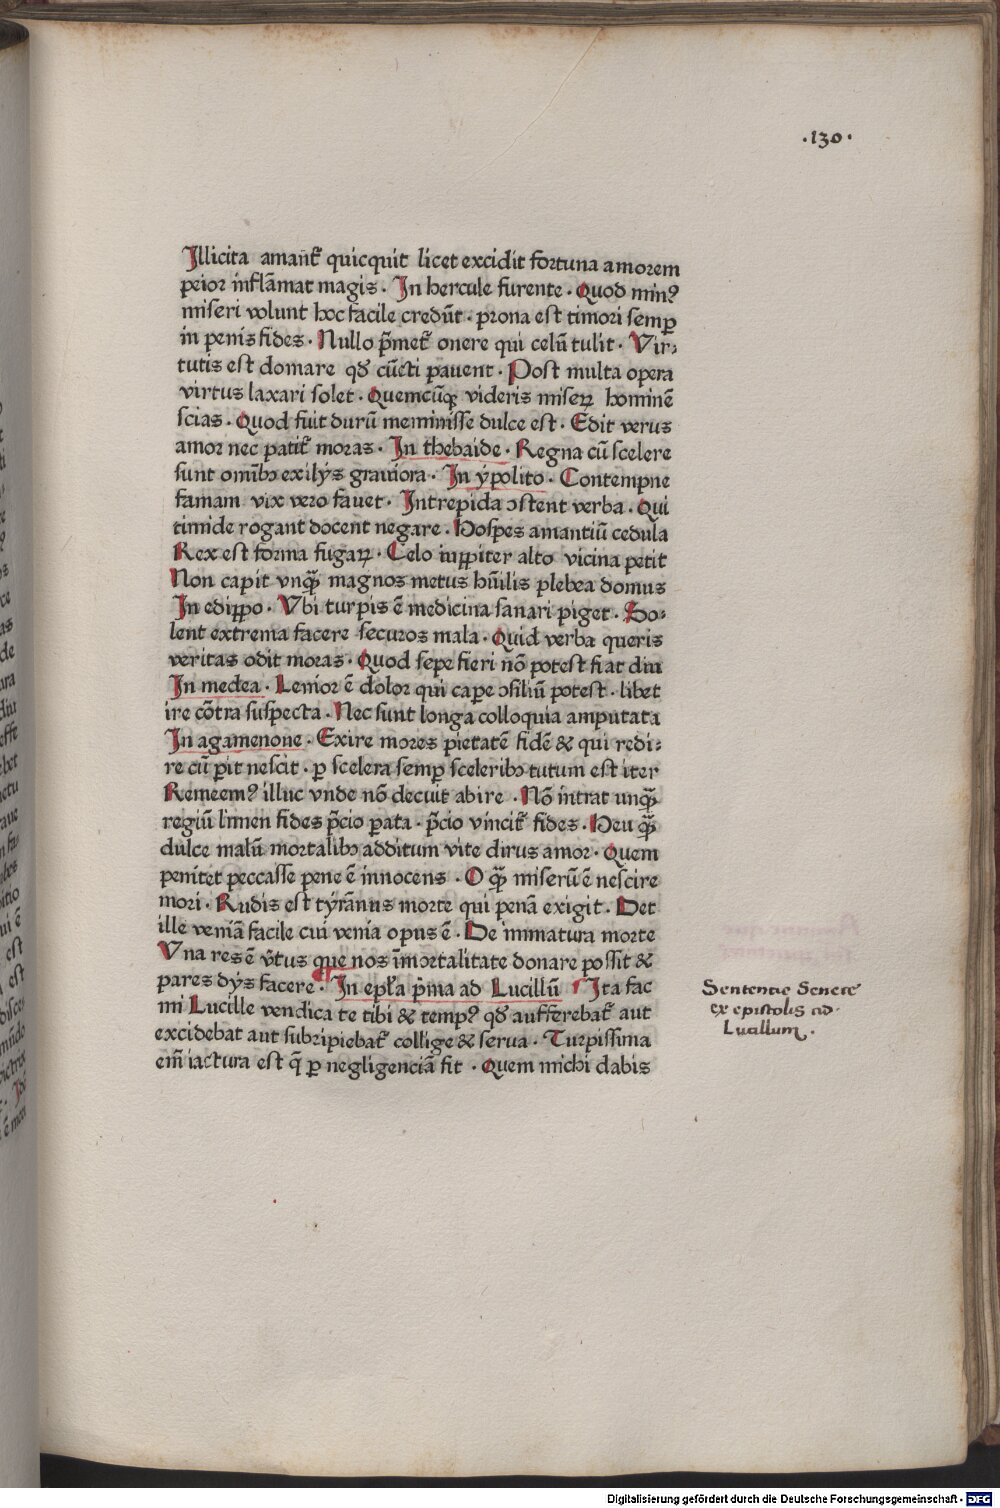 ·130·
Illicita amant᷑ quicquit licet excidit fortuna amorem
peior inflāmat magis · In hercule furente · Quod minꝰ
miseri volunt hoc facile credūt · prona est timori semꝑ
in penis fides · Nullo p̄met᷑ onere qui celū tulit · Vir⸗
tutis est domare qđ cūcti pauent · Post multa opera
virtus laxari solet · Quemcūqꝫ videris miseꝝ hominē
scias · Quod fuit durū meminisse dulce est · Edit verus
amor nec patit᷑ moras · In thebaide · Regna cū scelere
sunt omībꝫ exilijs grauiora · In ypolito · Contempne
famam vix vero fauet · Intrepida ꝯstent verba · Qui
timide rogant docent negare · Hospes amantiū cedula
Rex est forma fugaꝝ · Celo iuppiter alto vicina petit
Non capit vnqͣ magnos metus hūilis plebea domus
In edippo · Vbi turpis ē medicina sanari piget · So⸗
lent extrema facere securos mala · Quid verba queris
veritas odit moras · Quod sepe fieri nō potest fiat diu
In medea · Lenior ē dolor qui caꝑe ꝯsiliū potest · libet
ire cōtra suspecta · Nec sunt longa colloquia amputata
In agamenone · Exire mores pietatē fidē & qui redi⸗
re cū ꝑit nescit · ꝑ scelera semꝑ sceleribꝫ tutum est iter
Remeemꝰ illuc vnde nō decuit abire · Nō intrat unqͣ
regiū limen fides p̄cio ꝑata · p̄cio vincit᷑ fides · Heu qͣ
dulce malū mortalibꝫ additum vite dirus amor · Quem
penitet peccasse pene ē innocens · O qͣ miserū ē nescire
mori · Rudis est tyrānus morte qui penā exigit · Det
ille veniā facile cui venia opus ē · De inmatura morte
Vna res ē v̄tus que nos īmortalitate donare possit &
pares dijs facere · In epl̄a p̄ma ad Lucillū Ita fac
mi Lucille vendica te tibi & tempꝰ qđ aufferebat᷑ aut
excidebat aut subripiebat᷑ collige & serua · Turpissima
em̄ iactura est q̄ ꝑ negligenciā fit · Quem michi dabis
Sententie Senece
ex epistolis ad
Lucillum ·
Digitalisierung gefördert durch die Deutsche Forschungsgemeinschaft - DFG